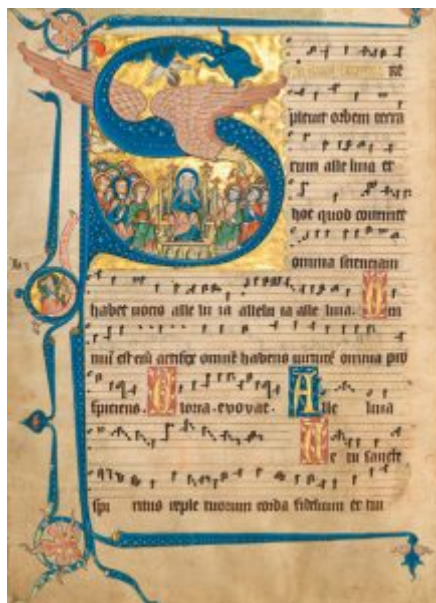 S re
pleuit orbem terra
rum alle luia et
hoc quod continet
omnia scienciam
habet uocis alle lu ia allelu ia alle luia. Om
niū est eñ artifex omnē habens uirtutē omnia pro
spiciens. Gloria. evovae. Alle luia
Ve ni sancte
spi ritus reple tuorum corda fidelium et tui